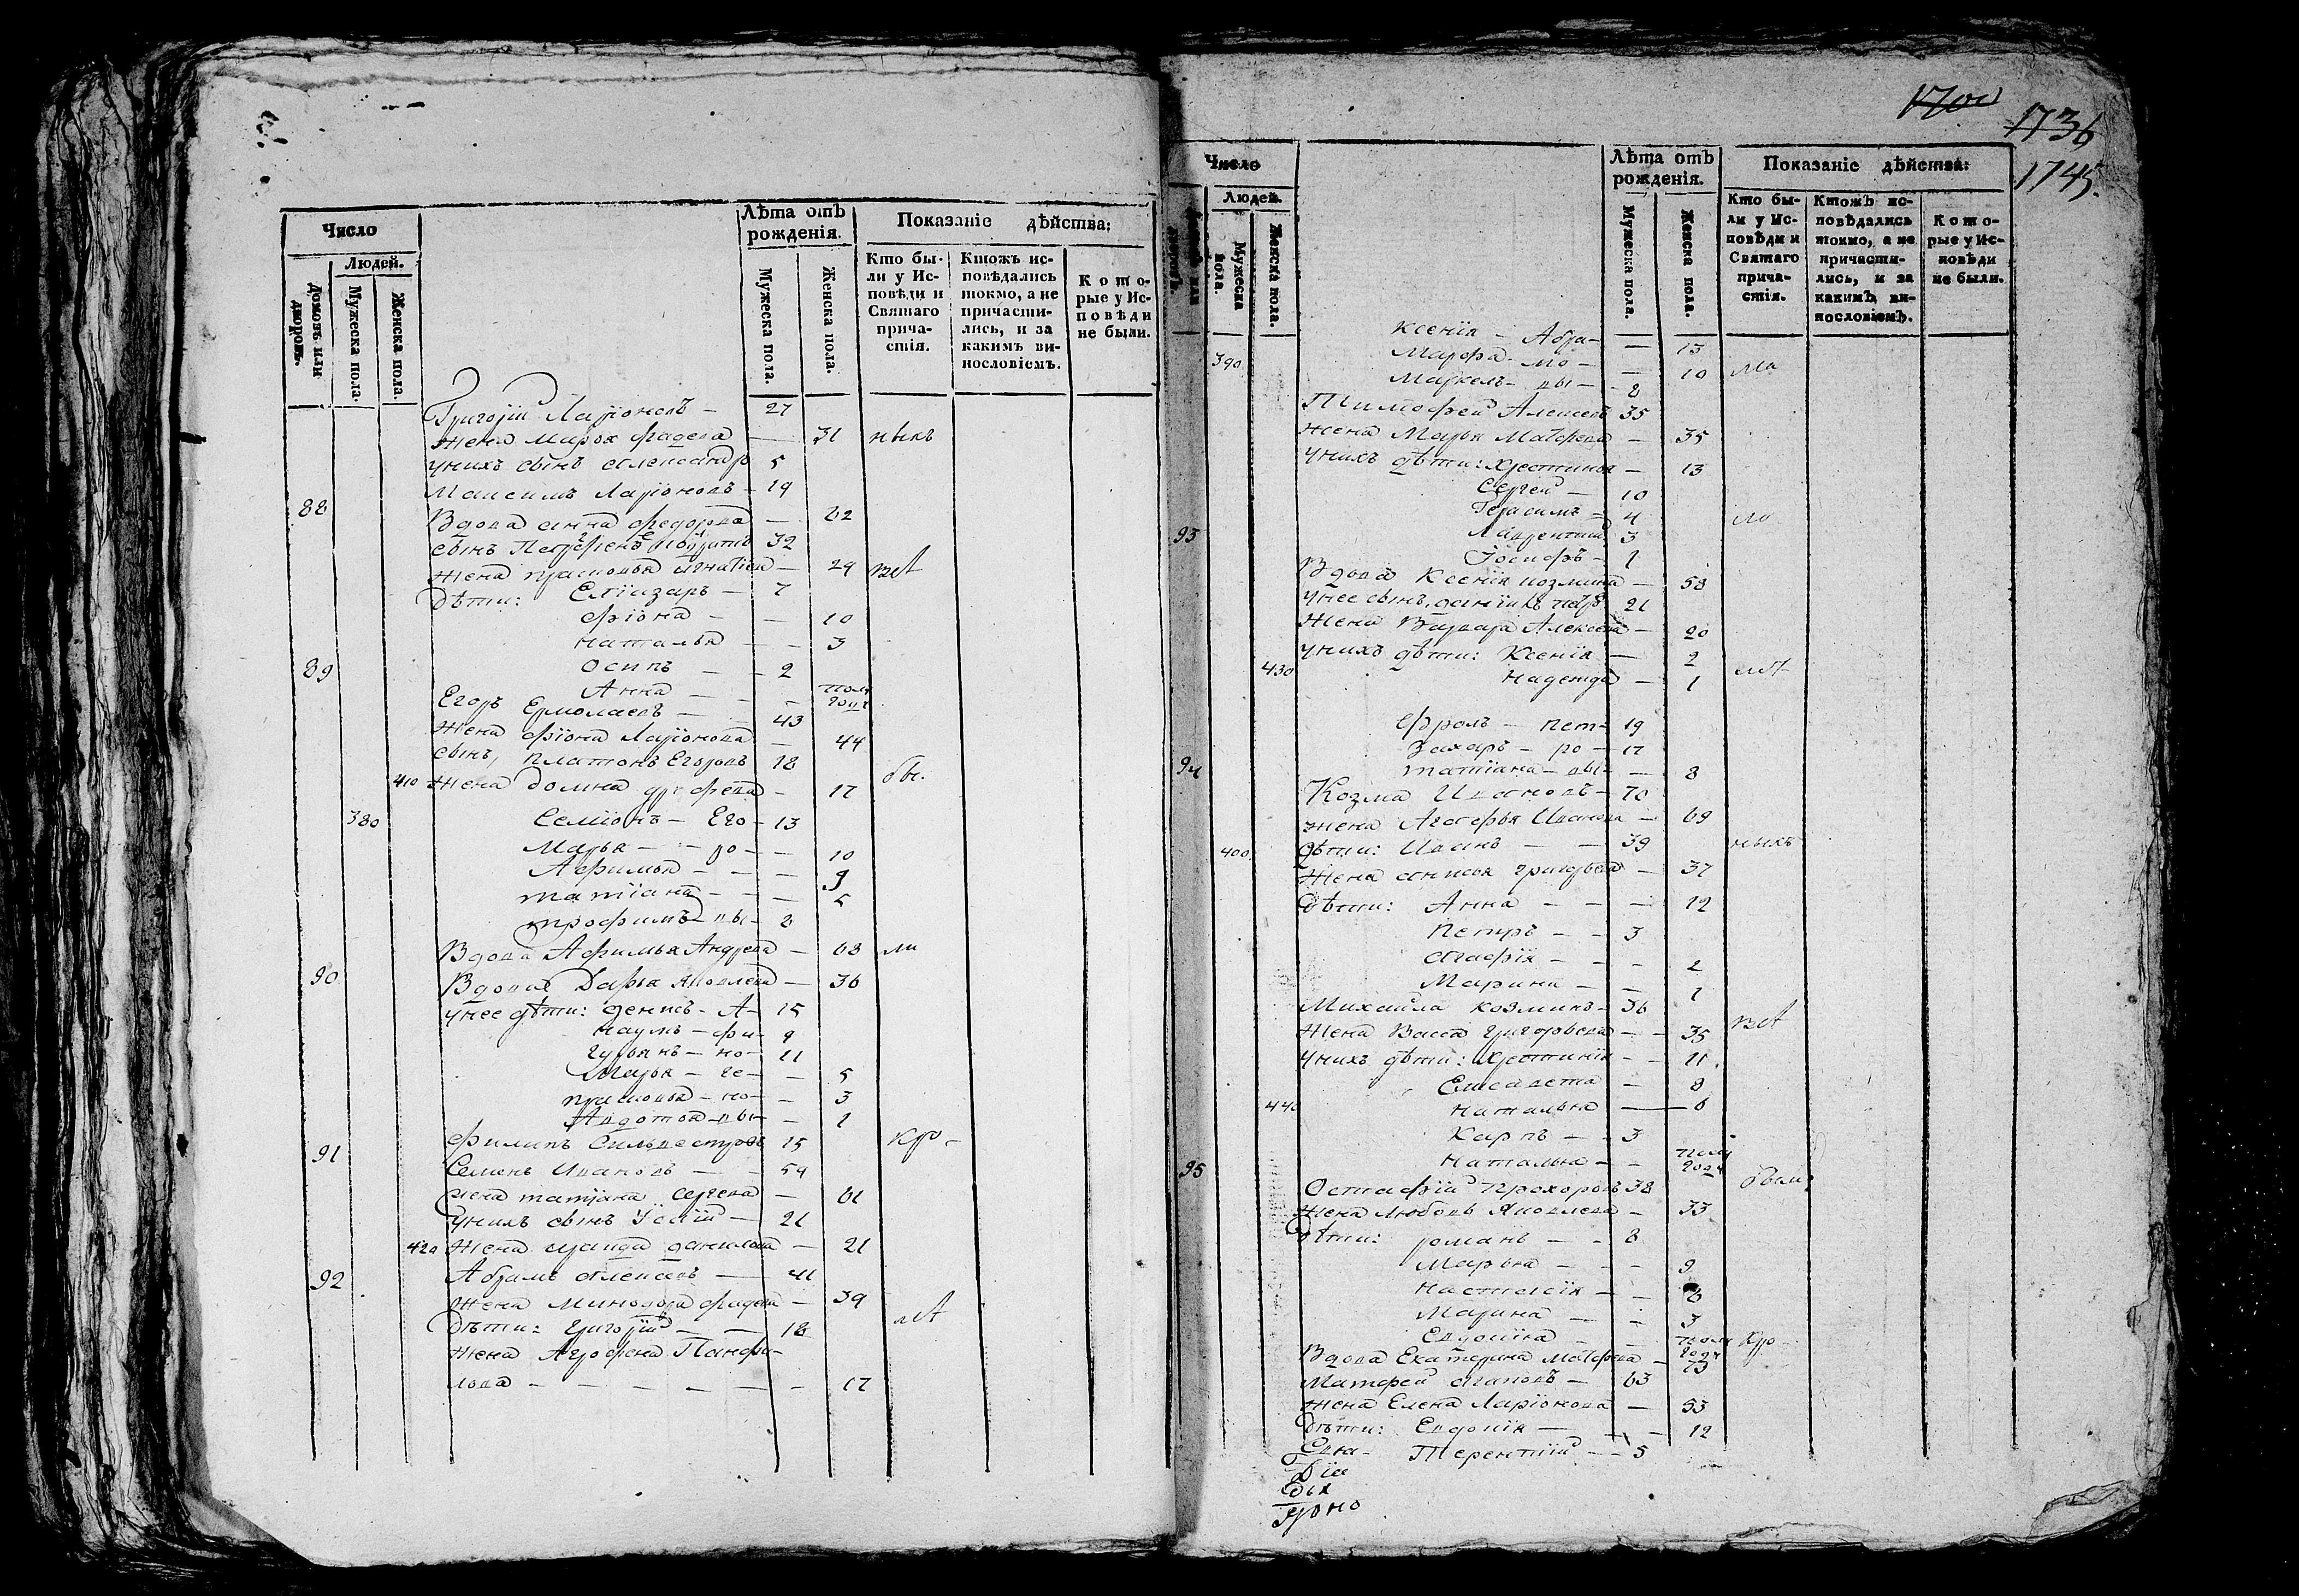 Число
Людей.
Домовъ или дворовъ.
Мужеска пола.
Женска пола.
Лѣта отъ рожденія.
Мужеска пола.
Женска пола.
Показаніе дѣйства:
Кто бы-
ли у Ис-
повѣди и
Святаго
прича-
стія.
Ктожъ ис-
повѣдались
токмо, а не
причасти-
лись, и за
какимъ ви-
нословіемъ.
К о т о-
рые у Ис-
повѣди
не были.
Григорій Ларіоновъ – 27
Жена Марѳа Фадеева — 31
Унихъ сынъ Александръ 5
Максимъ Ларіоновъ – 19
88 Вдова Анна Федорова — 62
сынъ 32
Жена Прасковья Игнатіева — 29
Дѣти: Еліизаръ – 7
Фіона – – 10
Наталья – – 3
89 Осипъ – – 2
Анна – – полугода
Егоръ Ермолаевъ – – 43
Жена Фіона Ларіонова — 44
сынъ, Платонъ Егоровъ 18 бы.
410 Жена Домна – 17
380 Семіонъ – Его – 13
Марья – – ро – – 10
Афимья – – – 9
Татіана – – – 5
Трофимъ – вы – 2
Вдова Афимья Андреева – 68 ли
90 Вдова Дарья Яковлева – 36
Унее дѣти: Денисъ – А – 15
Наумъ – фи – 9
Гурьянъ – но – 11
Марья – ге – – 5
Прасковья – но – – 3
Авдотья – вы – – 1
91 Филипъ Сильвестровъ 15 кро –
Семенъ Ивановъ – – 59
Жена Татіана Сергеева – 61
Унихъ сынъ 21
420 Жена Данилова – 21
92 Абрамъ Алексеевъ — 41
Жена Минодора Фадеева – 39
Дѣти: Григорій – – 18
Жена Агрофена Панфи-
лова – – – – – – 17
1700
1736
1745.
Число
Людей.
Мужеска пола.
Женска пола.
Лѣта отъ рожденія.
Мужеска пола.
Женска пола.
Показаніе дѣйства:
Кто бы-
ли у Ис-
повѣди и
Святаго
прича-
стія.
Ктожъ ис-
повѣдались
токмо, а не
причасти-
лись, и за
какимъ ви-
нословіемъ.
К о т о-
рые у Ис-
повѣди
не были.
Ксенія – Абра – — 13
390 Марфа – мо – — 10
Маркелъ – вы – – 2
Тимофей Алексеевъ 35
Жена Марья Матфеева – 35
Унихъ дѣти: Хрестинья – 13
Сергей – 10
Герасимъ – 4
93 Лаврентій 3
Іосифъ – 1
Вдова Ксенія Козмина – 58
Унее сынъ, 21
Жена Варвара Алексеева – 20
Унихъ дѣти: Ксенія – 2
430 Надежда – 1
Фролъ – Пет – 19
Захаръ – ро – 17
94 Татіана – вы – — 8
Козма Ивановъ – 70
жена Агафья Иванова – 69
400 Дѣти: Иванъ – – 39
Жена Анисья Григорьева – 37
Дѣти: Анна – – – 12
Петръ – – 3
Агафія – – – 2
Марина – – 1
Михаила Козминъ – 36
Жена Васса Григорьева – – 35
Унихъ дѣти: Хрестинія – – 11.
Елисавета – 8
440 Наталья — — 6
Карпъ – – 3
Наталья – – полугода
95 Остафій Прохоровъ 38
Жена Любовь Яковлева – 33
Дѣти: Романъ – – 8
Марья – – – 9
Настасія – – 6
Марина – – 3
Евдокіа – – полугода Кро –
Вдова Екатерина Матфеева – 73
Матфей Агаповъ – 63
Жена Елена Ларіонова – 53
Дѣти: Евдокія – – – 12
Терентій – – 5